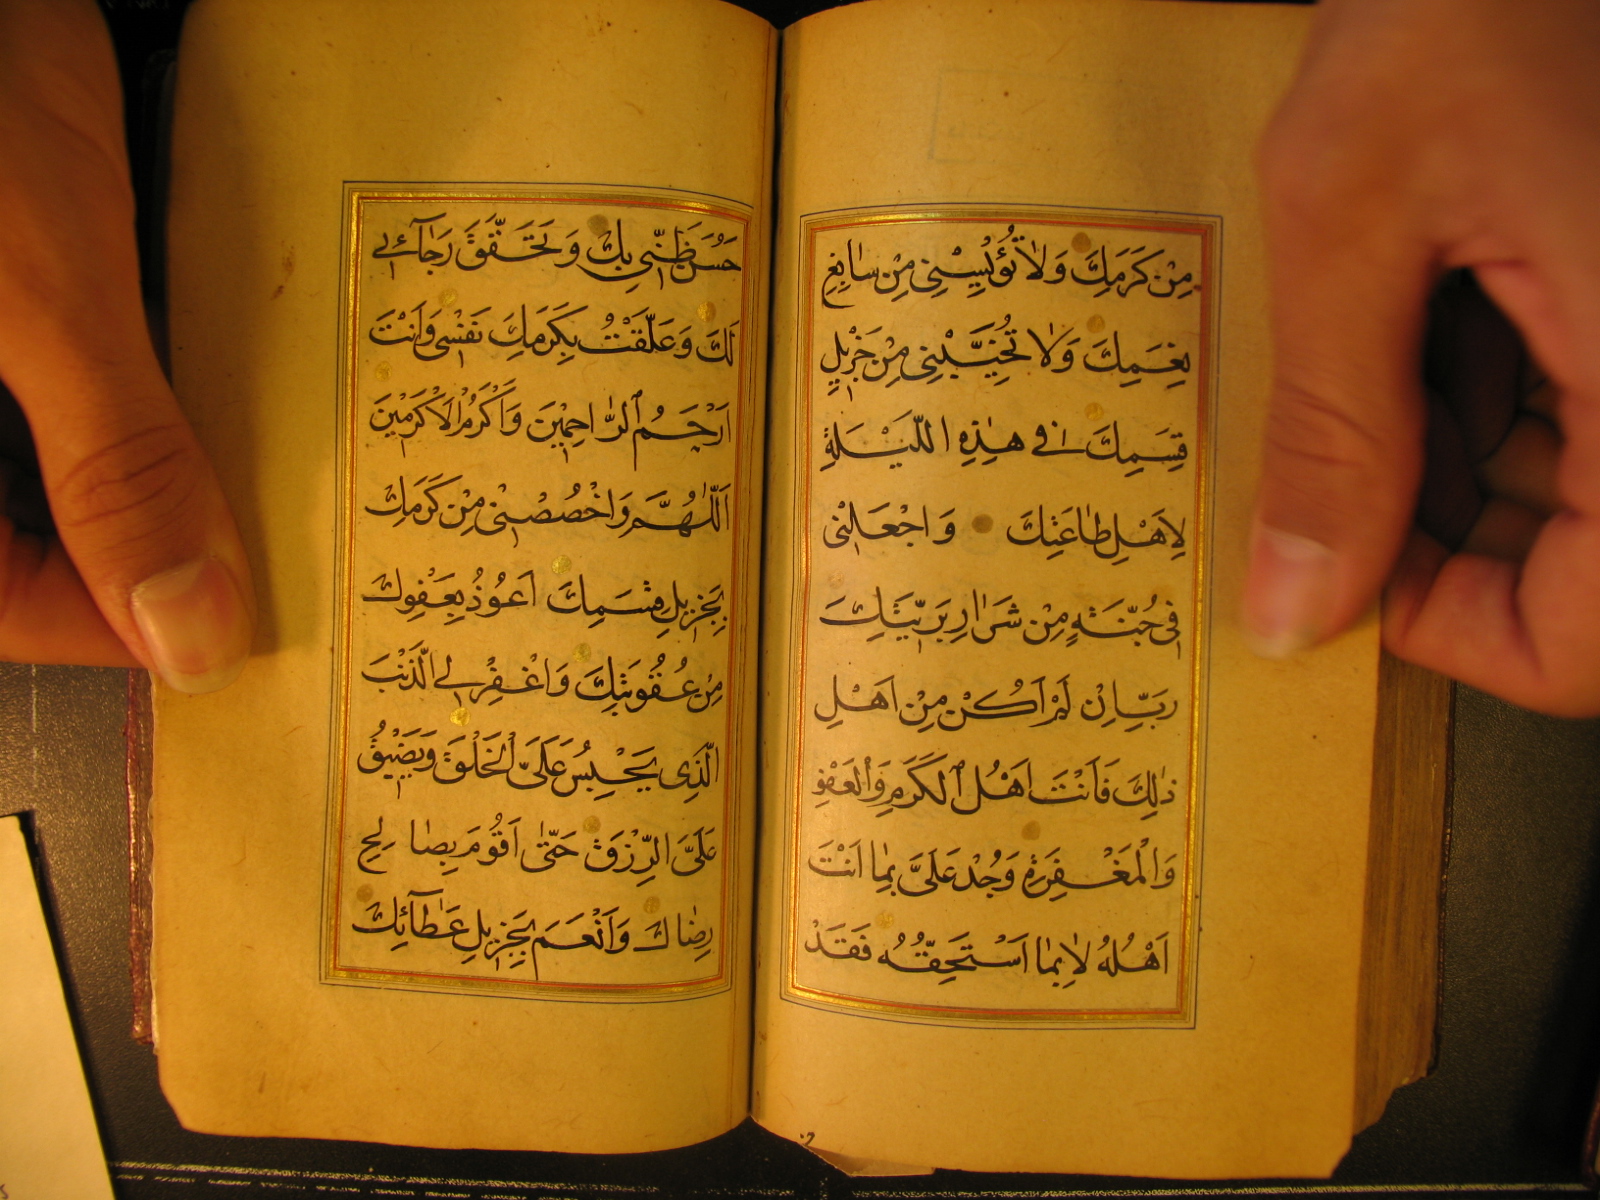 مِنْ كَرَمِكَ وَلاٰ تُؤْيِسْنِى مِنْ سٰابِغِ
نِعَمِكَ وَلاٰ تُخَيِّبْنِى مِنْ جَزِيلِ
قِسَمِكَ فِى هٰذِهِ اللَّيْلَةِ
لِاَهْلِ طٰاعَتِكَ وَاجْعَلْنِى
فِى جُنَّةٍ مِنْ شَرٰارِ بَرِيَّتِكَ
رَبِّ اِنْ لَمْ اَكُنْ مِنْ اَهْلِ
ذٰلِكَ فَاَنْتَ اَهْلُ الْكَرَمِ وَالْعَفْوِ
وَالْمَغْفِرَةِ وَجُدْ عَلَىَّ بِمٰا اَنْتَ
اَهْلُهُ لاٰ بِمٰا اَسْتَحِقُّهُ فَقَدْ
حَسُنَ ظَنِّى بِكَ وَتَحَقَّقَ رَجٰآئِى
لَكَ وَعَلَّقَتْ بِكَرَمِكَ نَفْسِى وَاَنْتَ
اَرْحَمُ الرّٰاحِمِينَ وَاَكْرَمُ الْاَكْرَمِينَ
اَللّٰهُمَّ وَاخْصُصْنِى مِنْ كَرَمِكَ
بِجَزِيلِ قِسَمِكَ اَعُوذُ بِعَفْوِكَ
مِنْ عُقُوبَتِكَ وَاغْفِرْ لِى الَّذَنْبَ
الَّذِى يَحْبِسُ عَلَىَّ الْخَلْقَ وَيَضِيْقُ
عَلَىَّ الرِّزْقَ حَتّٰى اَقُومَ بِصٰالِحِ
رِضٰاكَ وَاَنْعَمَ بِجَزِيلِ عَطٰآئِكَ